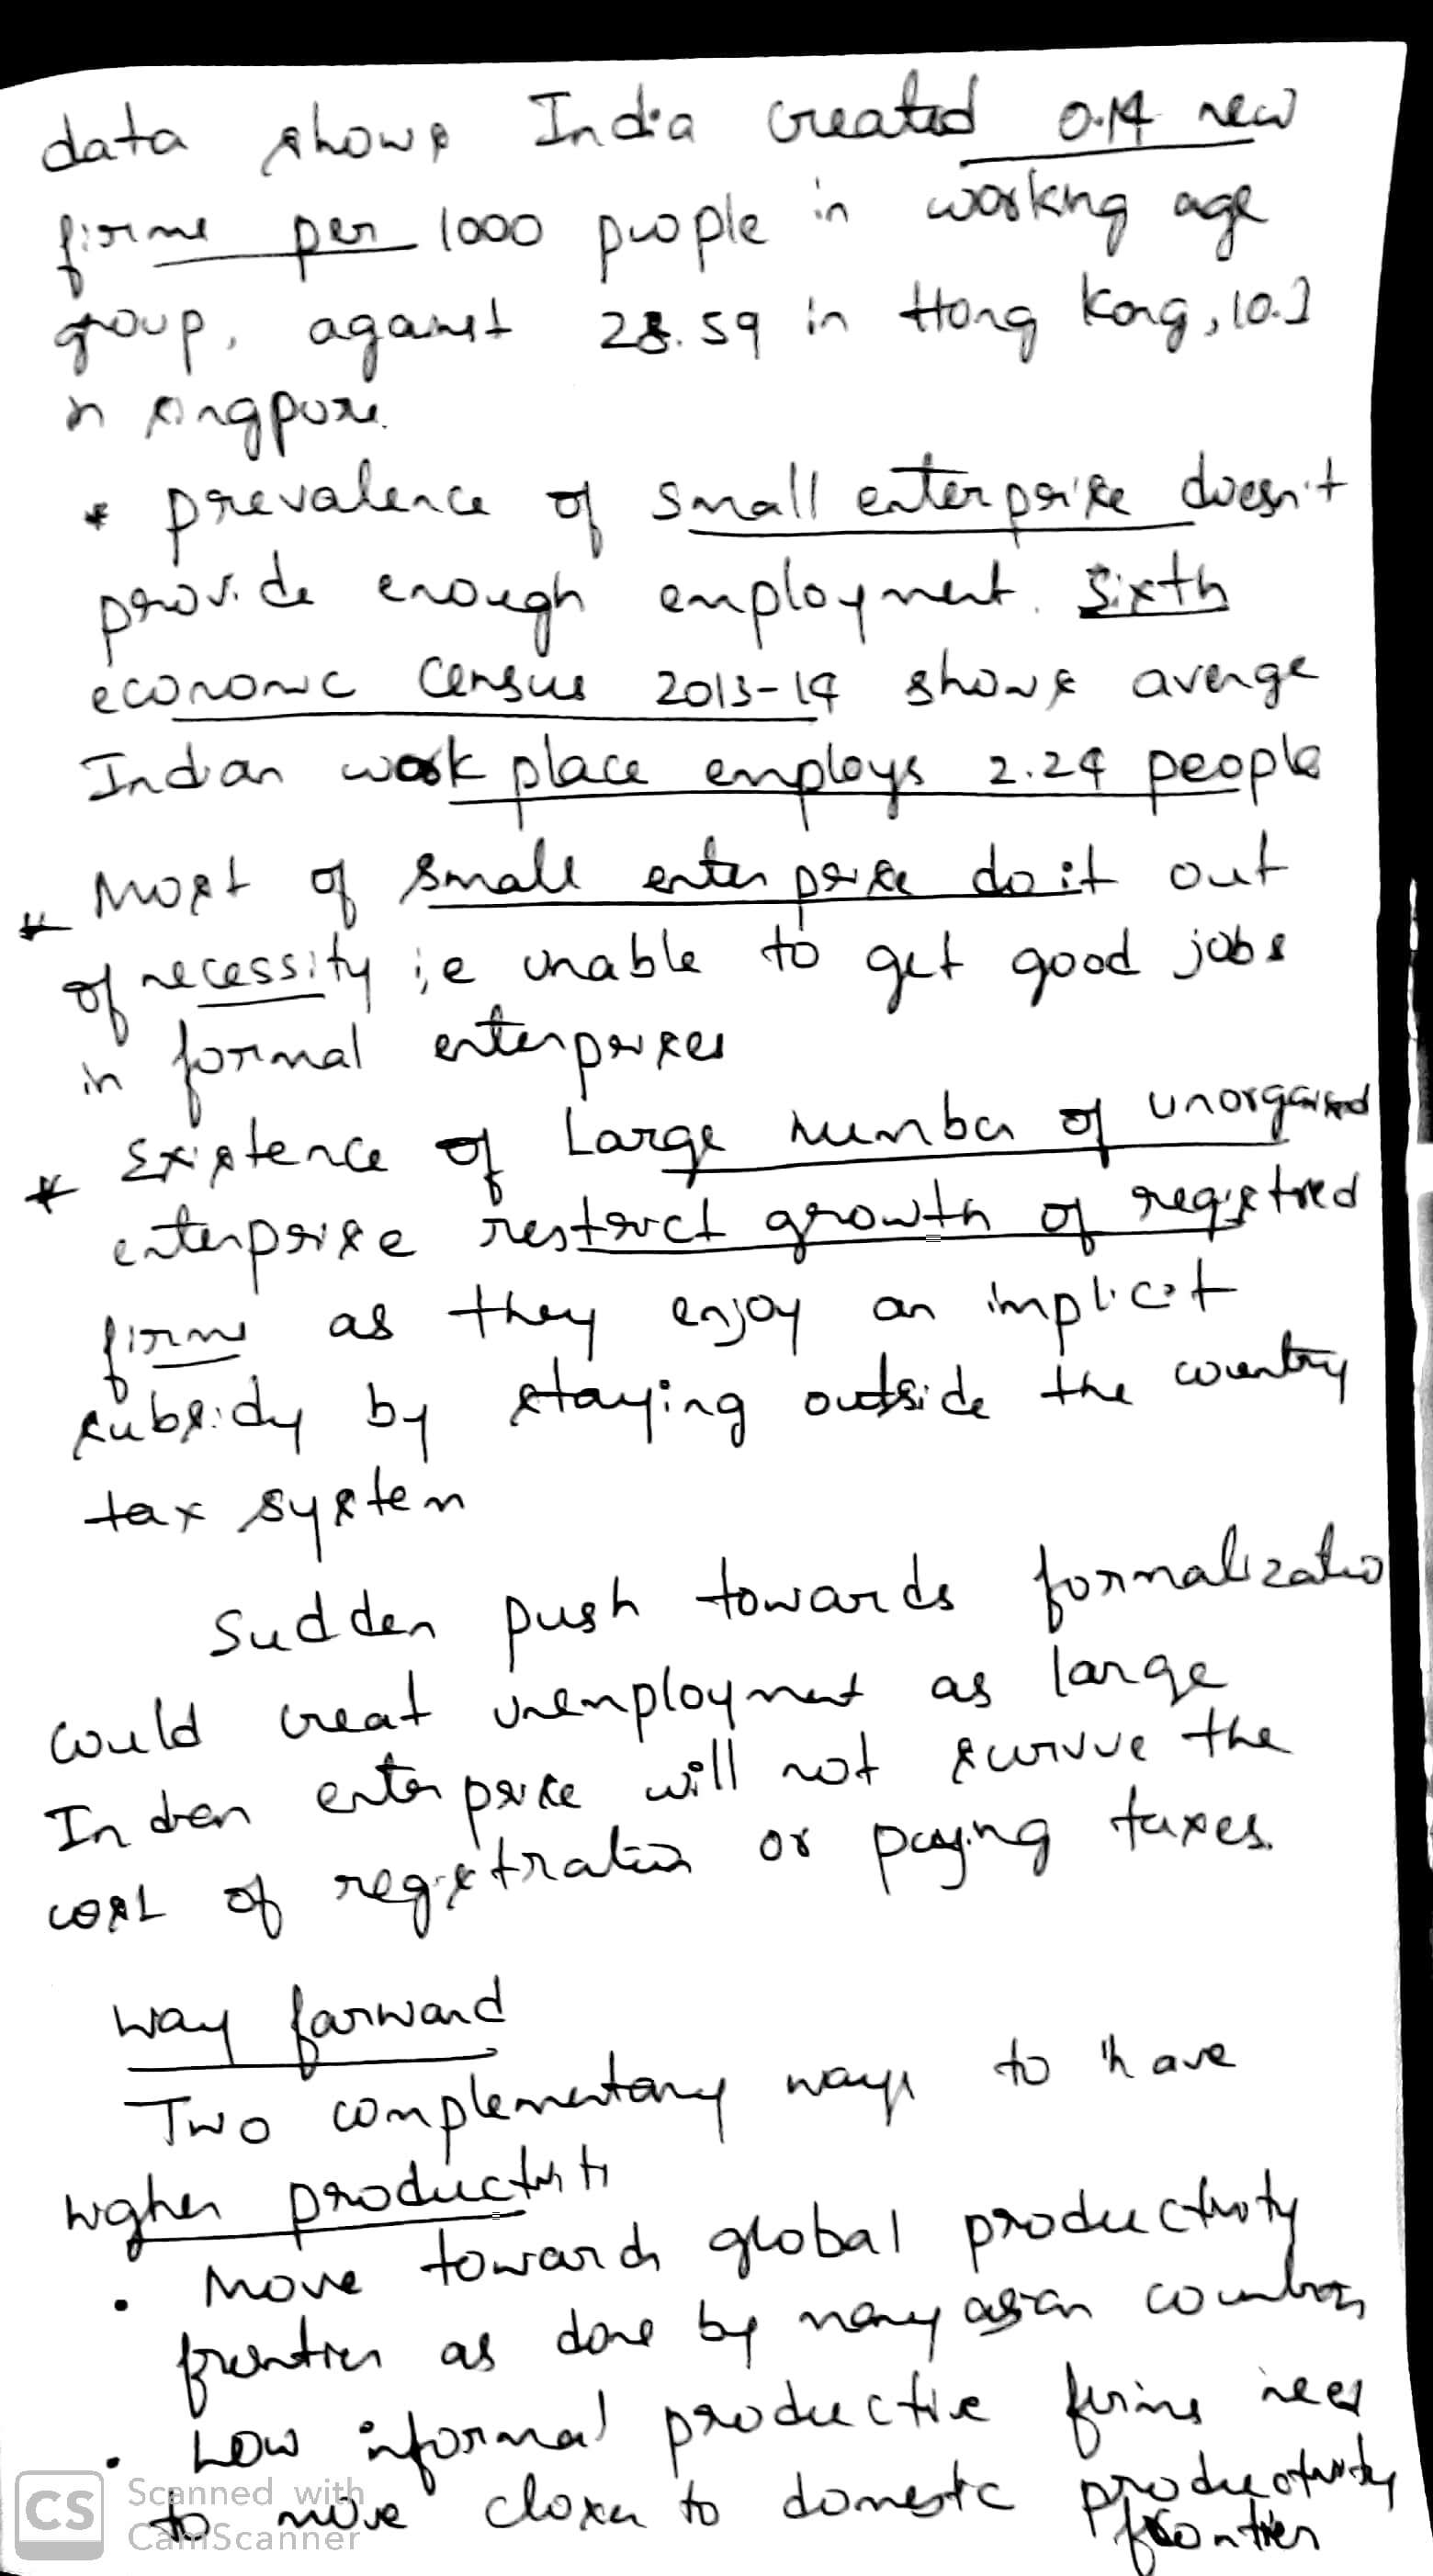 data shows India created 0.14 new
firms per 1000 people in working age
group, against 28.59 in Hong Kong, 10.
in singpore.
* prevalence of small enterprise doesn't
provide enough employment. Sixth
economic census 2013-14 shows average
Indian work place employs 2.24 people
* Most of small enterprise do it out
of necessity ie unable to get good jobs
in formal enterprises
* Existence of Large number of unorganised
enterprise restrict growth of registred
firms as they enjoy an implicit
subsidy by staying outside the country
tax system
Sudden push towards formalizatio
could creat unemployment as large
Indian enterprise will not survive the
cost of registration or paying taxes.
way forward
Two complementary ways to have
higher productivity
• Move towards global productivity
frontier as done by many asian countries
• Low informal productive firms need
to move closer to domestic productivity
frontier
CS Scanned with
CamScanner